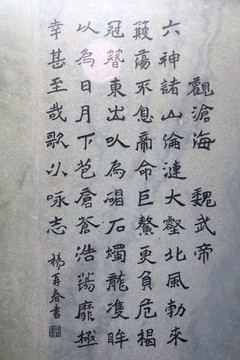 觀滄海 魏武帝
六神諸山倫漣大壑北風勃來
簸蕩不息帝命巨鰲更負危揭
冠簪東出以為碣石燭龍雙眸
以為日月下苞蒼浩靡極
幸甚至哉歌以咏志 楊再春書